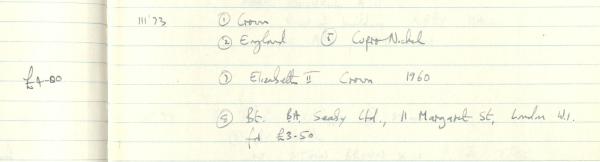 III '73 ① Crown
② England ⑤ Cupro-Nickel
£4-00 ③ Elizabeth II Crown 1960
⑧ Bt. BA. Seaby Ltd., 11 Margaret St, London W.1.
for £3-50